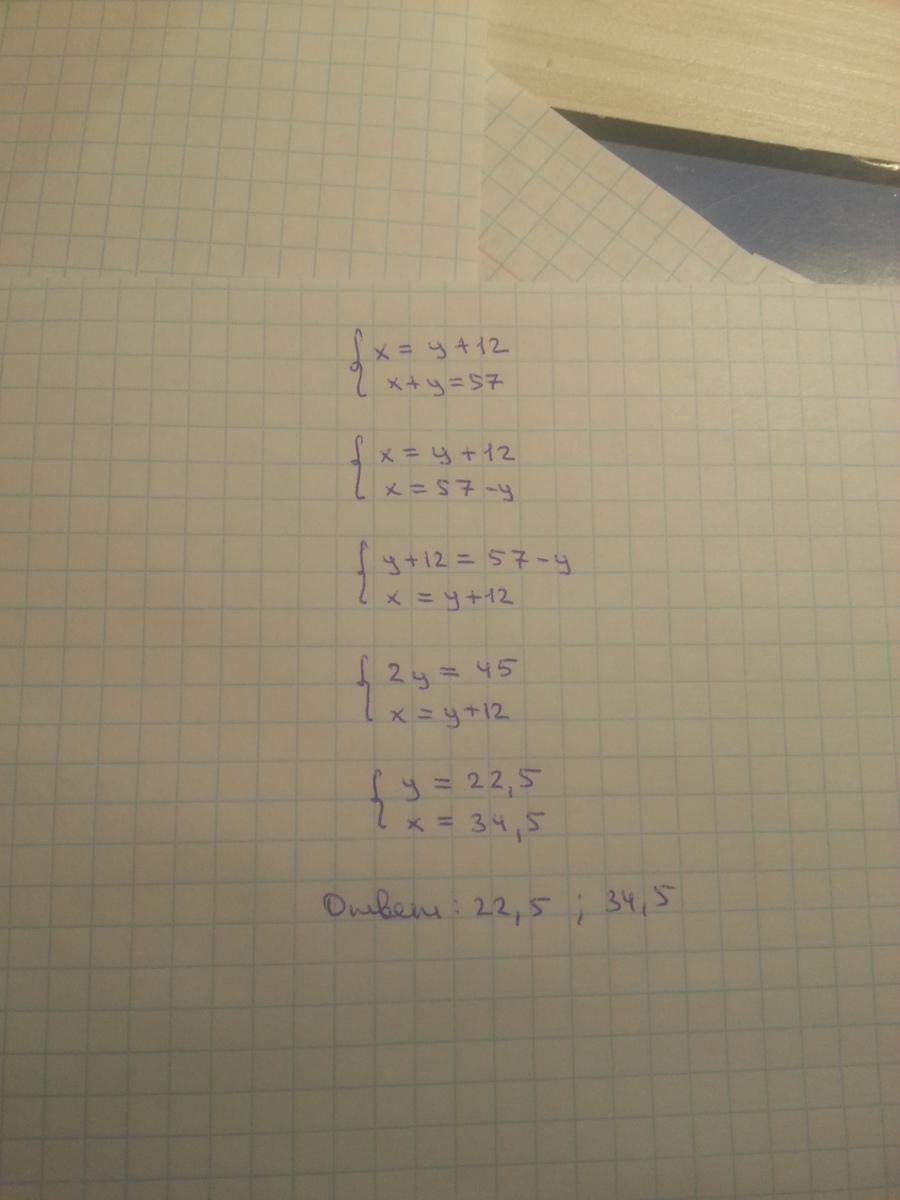 { x = y + 12
x + y = 57
{ x = y + 12
x = 57 - y
{ y + 12 = 57 - y
x = y + 12
{ 2y = 45
x = y + 12
{ y = 22,5
x = 34,5
Ответ: 22,5 ; 34,5